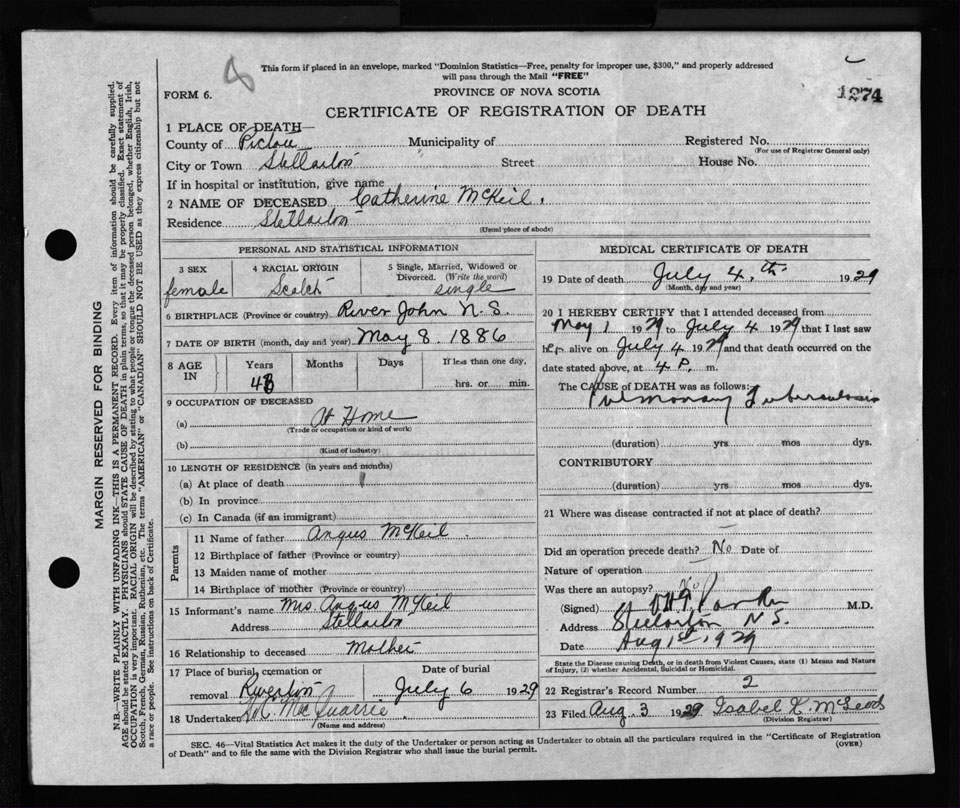 This form if placed in an envelope, marked "Dominion Statistics—Free, penalty for improper use, $300," and properly addressed
will pass through the Mail "FREE"
FORM 6.
PROVINCE OF NOVA SCOTIA
1274
CERTIFICATE OF REGISTRATION OF DEATH
1 PLACE OF DEATH—
County of Pictou Municipality of Registered No.
(For use of Registrar General only)
City or Town Stellarton Street House No.
If in hospital or institution, give name
2 NAME OF DECEASED Catherine McKeil.
Residence Stellarton
(Usual place of abode)
PERSONAL AND STATISTICAL INFORMATION
3 SEX 4 RACIAL ORIGIN 5 Single, Married, Widowed or
Divorced. (Write the word)
female Scotch single
6 BIRTHPLACE (Province or country) River John N.S.
7 DATE OF BIRTH (month, day and year) May 8. 1886
8 AGE IN Years Months Days If less than one day,
43 hrs. or min.
9 OCCUPATION OF DECEASED
(a) At Home
(Trade or occupation or kind of work)
(b)
(Kind of industry)
10 LENGTH OF RESIDENCE (in years and months)
(a) At place of death
(b) In province
(c) In Canada (if an immigrant)
Parents
11 Name of father Angus McKeil.
12 Birthplace of father (Province or country)
13 Maiden name of mother
14 Birthplace of mother (Province or country)
15 Informant's name Mrs. Angus McKeil
Address Stellarton
16 Relationship to deceased Mother
17 Place of burial, cremation or Date of burial
removal Riverton July 6 1929
18 Undertaker McQuarrie.
(Name and address)
MEDICAL CERTIFICATE OF DEATH
19 Date of death July 4.th 1929
(Month, day and year)
20 I HEREBY CERTIFY that I attended deceased from
May 1 1929 to July 4 1929 that I last saw
her alive on July 4 1929 and that death occurred on the
date stated above, at 4 P. m.
The CAUSE of DEATH was as follows:
Pulmonary Tuberculosis
(duration) yrs mos dys.
CONTRIBUTORY
(duration) yrs. mos dys.
21 Where was disease contracted if not at place of death?
Did an operation precede death? No Date of
Nature of operation
Was there an autopsy? No
(Signed) M.D.
Address Stellarton N S.
Date Aug 1st, 1929
State the Disease causing Death, or in death from Violent Causes, state (1) Means and Nature
of Injury, (2) whether Accidental, Suicidal or Homicidal.
22 Registrar's Record Number 2
23 Filed Aug. 3 1929 Isabel K. McLeod
(Division Registrar)
SEC. 46—Vital Statistics Act makes it the duty of the Undertaker or person acting as Undertaker to obtain all the particulars required in the "Certificate of Registration
of Death" and to file the same with the Division Registrar who shall issue the burial permit.
(OVER)
MARGIN RESERVED FOR BINDING
N.B.—WRITE PLAINLY WITH UNFADING INK—THIS IS A PERMANENT RECORD. Every item of information should be carefully supplied.
AGE should be stated EXACTLY. PHYSICIANS should STATE CAUSE OF DEATH in plain terms, so that it may be properly classified. Exact statement of
OCCUPATION is very important. RACIAL ORIGIN will be described by stating to what people or tongue the deceased person belonged, whether English, Irish,
Scotch, French, German, Russian, Ruthenian, etc. The terms "AMERICAN" or "CANADIAN" SHOULD NOT BE USED as they express citizenship but not
a race or people. See instructions on back of Certificate.